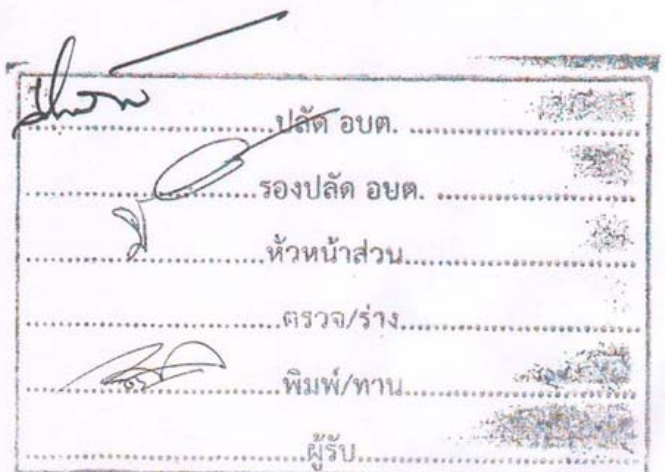 ....................ปลัด อบต. ....................
....................รองปลัด อบต. ....................
....................หัวหน้าส่วน....................
....................ตรวจ/ร่าง....................
....................พิมพ์/ทาน....................
....................ผู้รับ....................